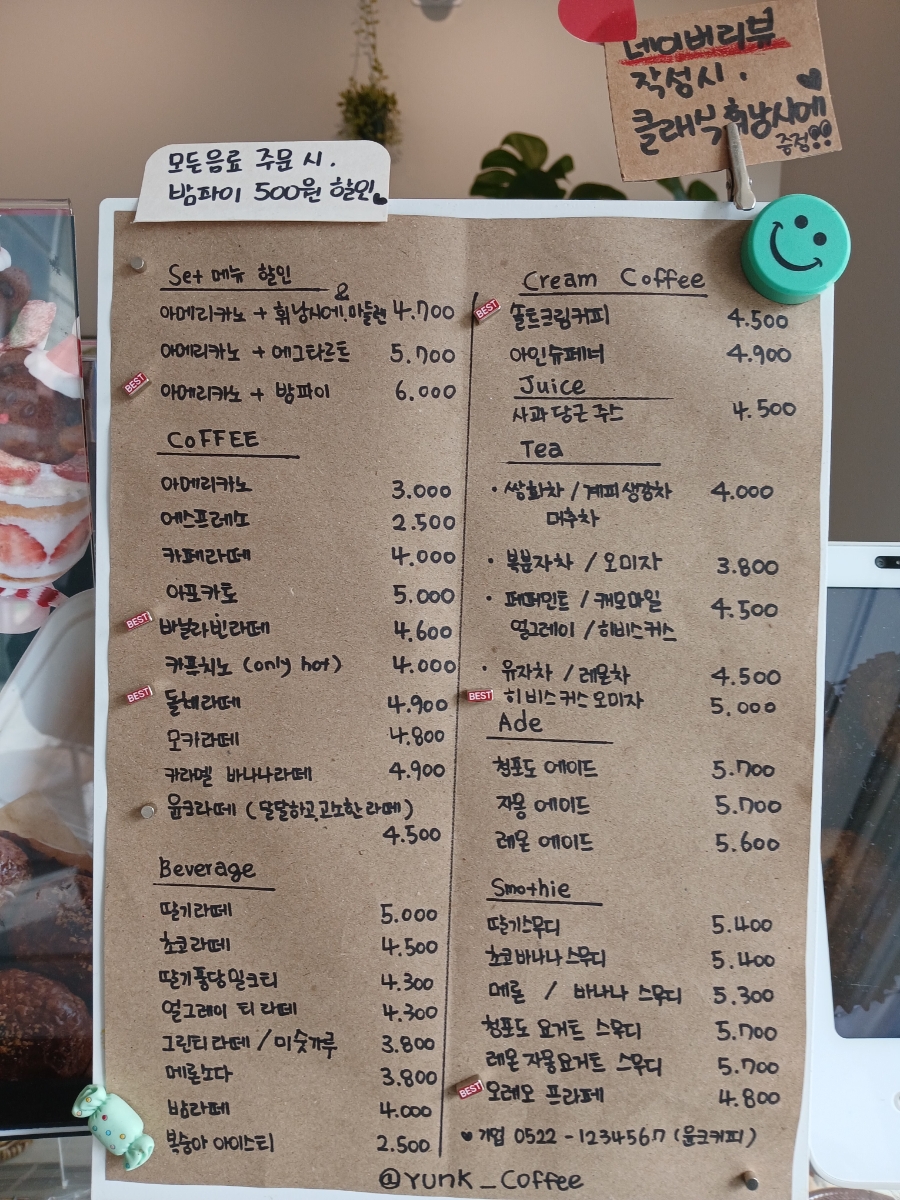 네이버리뷰
작성시.
클래식 휘낭시에
증정!!
모든음료 주문 시.
밤파이 500원 할인
Set 메뉴 할인
아메리카노 + 휘낭시에 & 마들렌 4.700
아메리카노 + 에그타르트 5.700
BEST 아메리카노 + 밤파이 6.000
COFFEE
아메리카노 3.000
에스프레소 2.500
카페라떼 4.000
아포카토 5.000
BEST 바닐라빈라떼 4.600
카푸치노 (only hot) 4.000
BEST 돌체라떼 4.900
모카라떼 4.800
카라멜 바나나라떼 4.900
윤크라떼 (달달하고,고소한라떼)
4.500
Beverage
딸기라떼 5.000
초코라떼 4.500
딸기퐁당밀크티 4.300
얼그레이 티라떼 4.300
그린티라떼 / 미숫가루 3.800
메론소다 3.800
밤라떼 4.000
복숭아 아이스티 2.500
Cream Coffee
BEST 솔트크림커피 4.500
아인슈페너 4.900
Juice
사과당근주스 4.500
Tea
· 쌍화차 / 계피생강차 4.000
대추차
· 복분자차 / 오미자 3.800
· 페퍼민트 / 캐모마일 4.500
얼그레이 / 히비스커스
· 유자차 / 레몬차 4.500
BEST 히비스커스오미자 5.000
Ade
청포도 에이드 5.700
자몽 에이드 5.700
레몬 에이드 5.600
Smothie
딸기스무디 5.400
초코바나나스무디 5.400
메론 / 바나나 스무디 5.300
청포도 요거트 스무디 5.700
레몬자몽요거트 스무디 5.700
BEST 오레오 프라페 4.800
♥ 기업 0522-1234567 (윤크커피)
@YUNK_Coffee